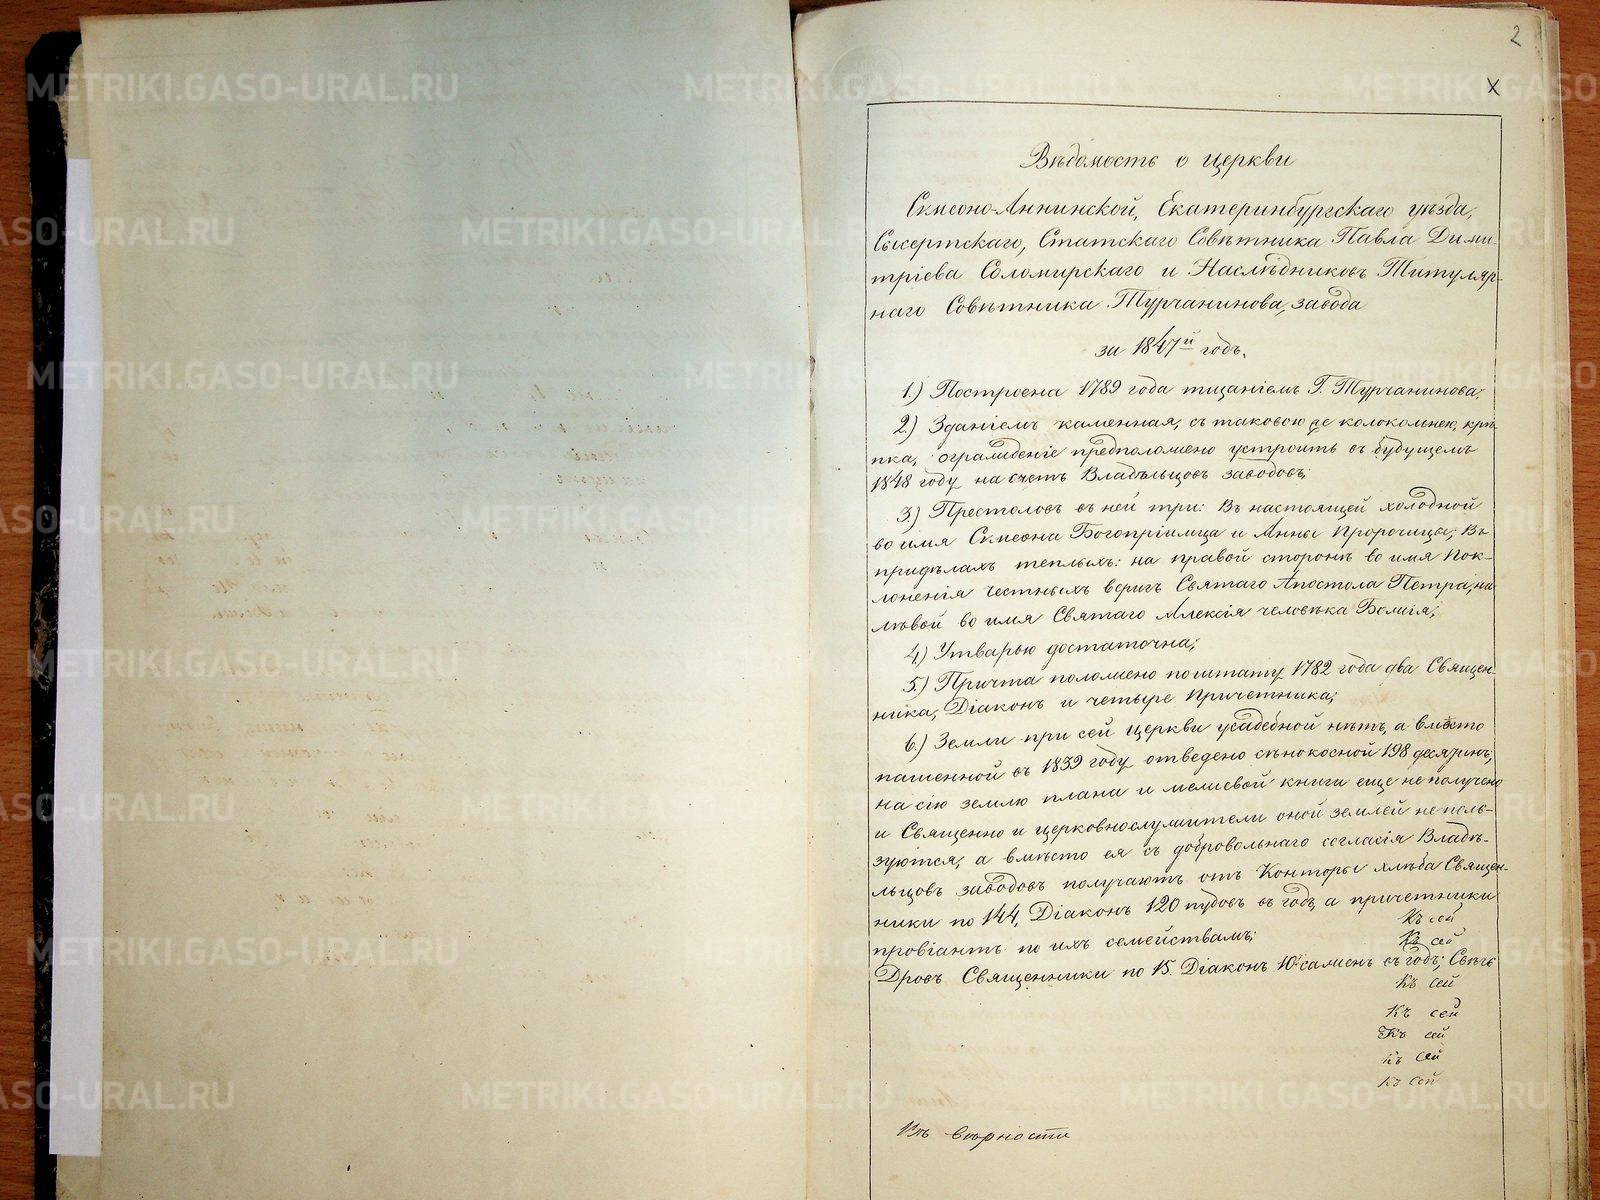 2
X
Вѣдомость о церкви
Симеоно-Аннинской, Екатеринбургскаго уѣзда,
Сысертскаго, Статскаго Совѣтника Павла Дими-
тріева Соломирскаго и Наслѣдниковъ Титуляр-
наго Совѣтника Турчанинова, завода
за 1847й годъ.
1.) Построена 1789 года тщаніемъ Г. Турчанинова;
2.) Зданіемъ каменная, съ таковою же колокольнею, крѣ-
пка, огражденіе предположено устроить въ будущемъ
1848 году на счетъ Владѣльцовъ заводовъ;
3.) Престоловъ въ ней три: Въ настоящей холодной
во имя Симеона Богопріимца и Анны Пророчицы; Въ
придѣлахъ теплыхъ: на правой сторонѣ во имя Пок-
лоненія честныхъ веригъ Святаго Апостола Петра, на
лѣвой во имя Святаго Алексія человѣка Божія;
4) Утварью достаточна;
5.) Причта положено по штату 1782 года два Священ-
ника, Діаконъ и четыре Причетника;
6.) Земли при сей церкви усадебной нѣтъ, а вмѣсто
пашенной въ 1839 году отведено сѣнокосной 198 десятинъ;
на сію землю плана и межевой книги еще не получено
и Священно и церковнослужители оной землей не поль-
зуются, а вмѣсто ея съ добровольнаго согласія Владѣ-
льцовъ заводовъ получаютъ отъ Конторы хлѣба Священ-
ники по 144, Діаконъ 120 пудовъ въ годъ, а причетники
провіантъ по ихъ семействамъ;
Дровъ Священники по 15. Діаконъ 10 сажень въ годъ; Свѣчь
Къ сей
Къ сей
Къ сей
Къ сей
Къ сей
Къ сей
Къ сей
вѣрности
METRIKI.GASO-URAL.RU